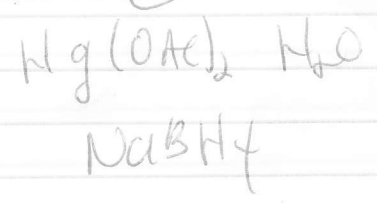 Hg(OAc)₂ H₂O
NaBH4